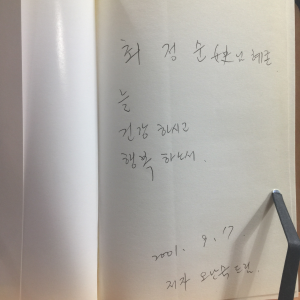 최 정 순 님 혜존
늘
건강 하시고
행복 하소서.
2001. 9. 17
저자 드림.